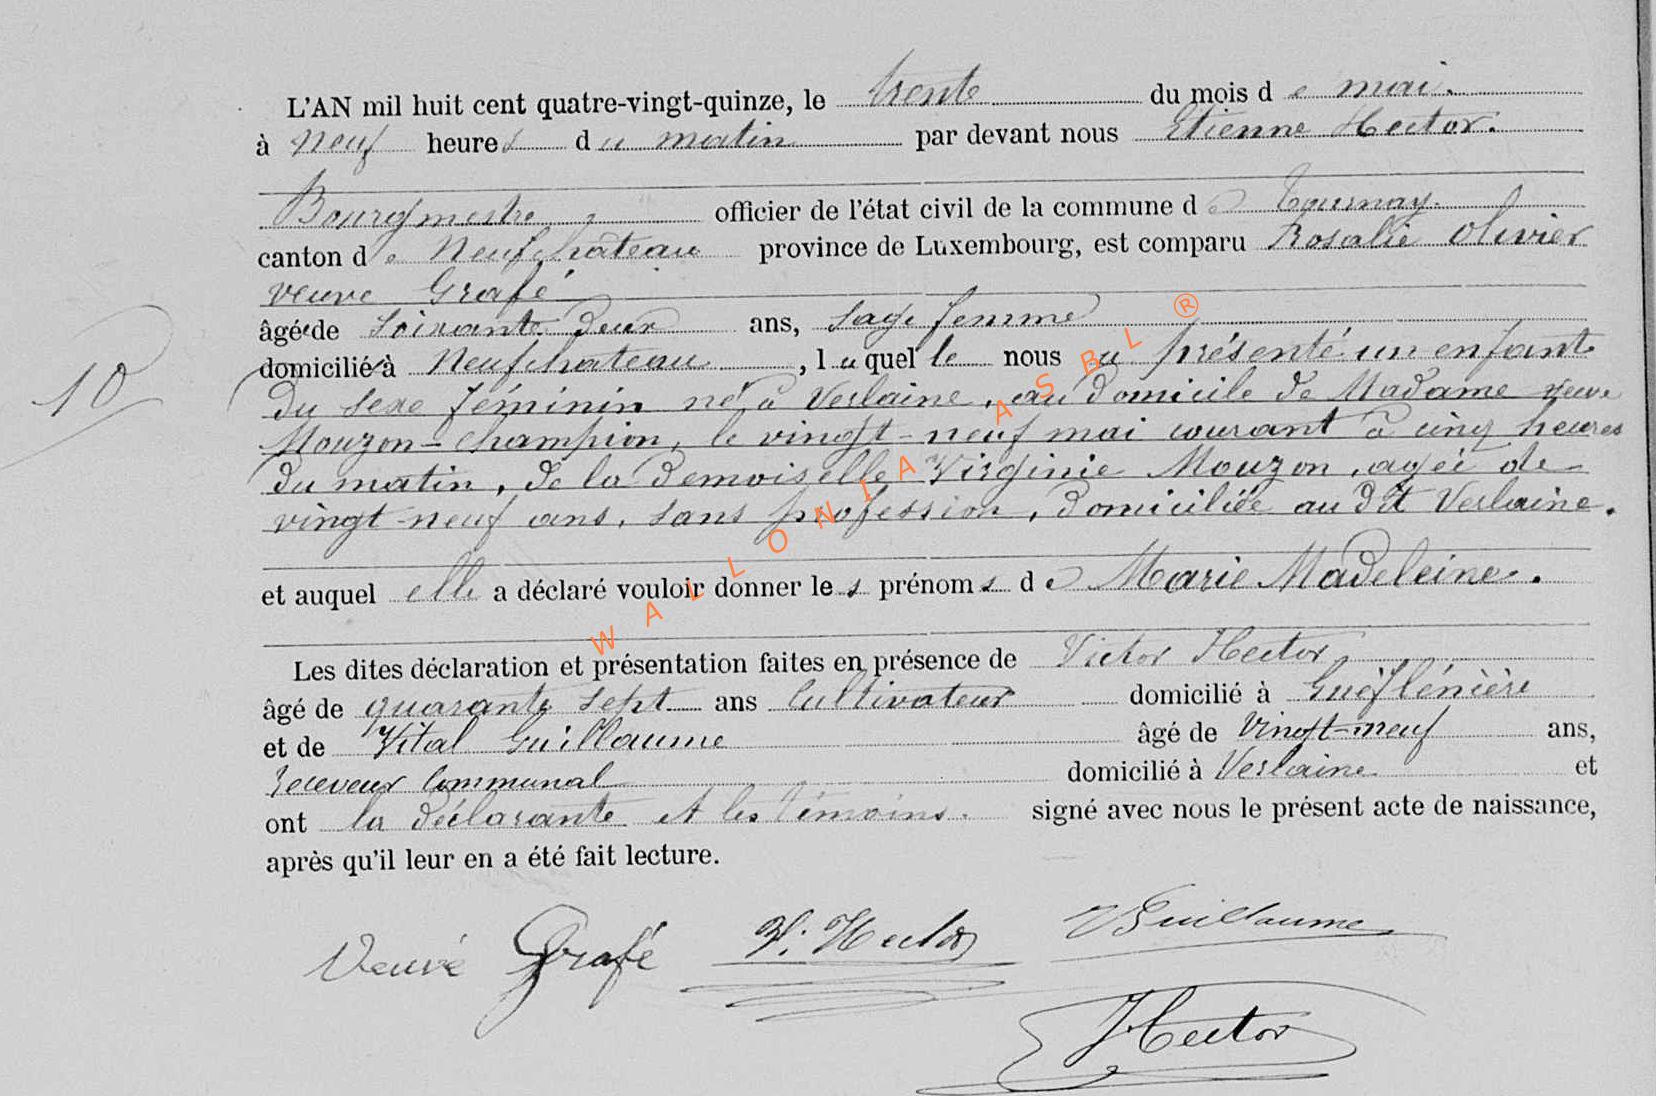 L'AN mil huit cent quatre-vingt-quinze, le trente du mois de mai.
à neuf heures du matin par devant nous Etienne Hector.
Bourgmestre, officier de l'état civil de la commune de Tournay.
canton de Neufchâteau province de Luxembourg, est comparu Rosalie Olivier
veuve Grafé
âgée de soixante deux ans, sage femme
domiciliée à Neufchateau, laquelle nous a présenté un enfant
du sexe féminin né à Verlaine, au domicile de Madame veuve
Mouzon-Champion, le vingt-neuf mai courant à cinq heures
du matin, de la demoiselle Virginie Mouzon, agée de
vingt-neuf ans, sans profession, domiciliée au dit Verlaine.
et auquel elle a déclaré vouloir donner les prénoms de Marie Madeleine.
10
Les dites déclaration et présentation faites en présence de Victor Hector,
âgé de quarante sept ans Cultivateur domicilié à Gueflénière
et de Vital Guillaume âgé de Vingt-neuf ans,
receveur Communal domicilié à Verlaine et
ont la déclarante et les témoins. signé avec nous le présent acte de naissance,
après qu'il leur en a été fait lecture.
Veuve Grafé V. Hector VGuillaume
Hector
WALLONIA ASBL ®